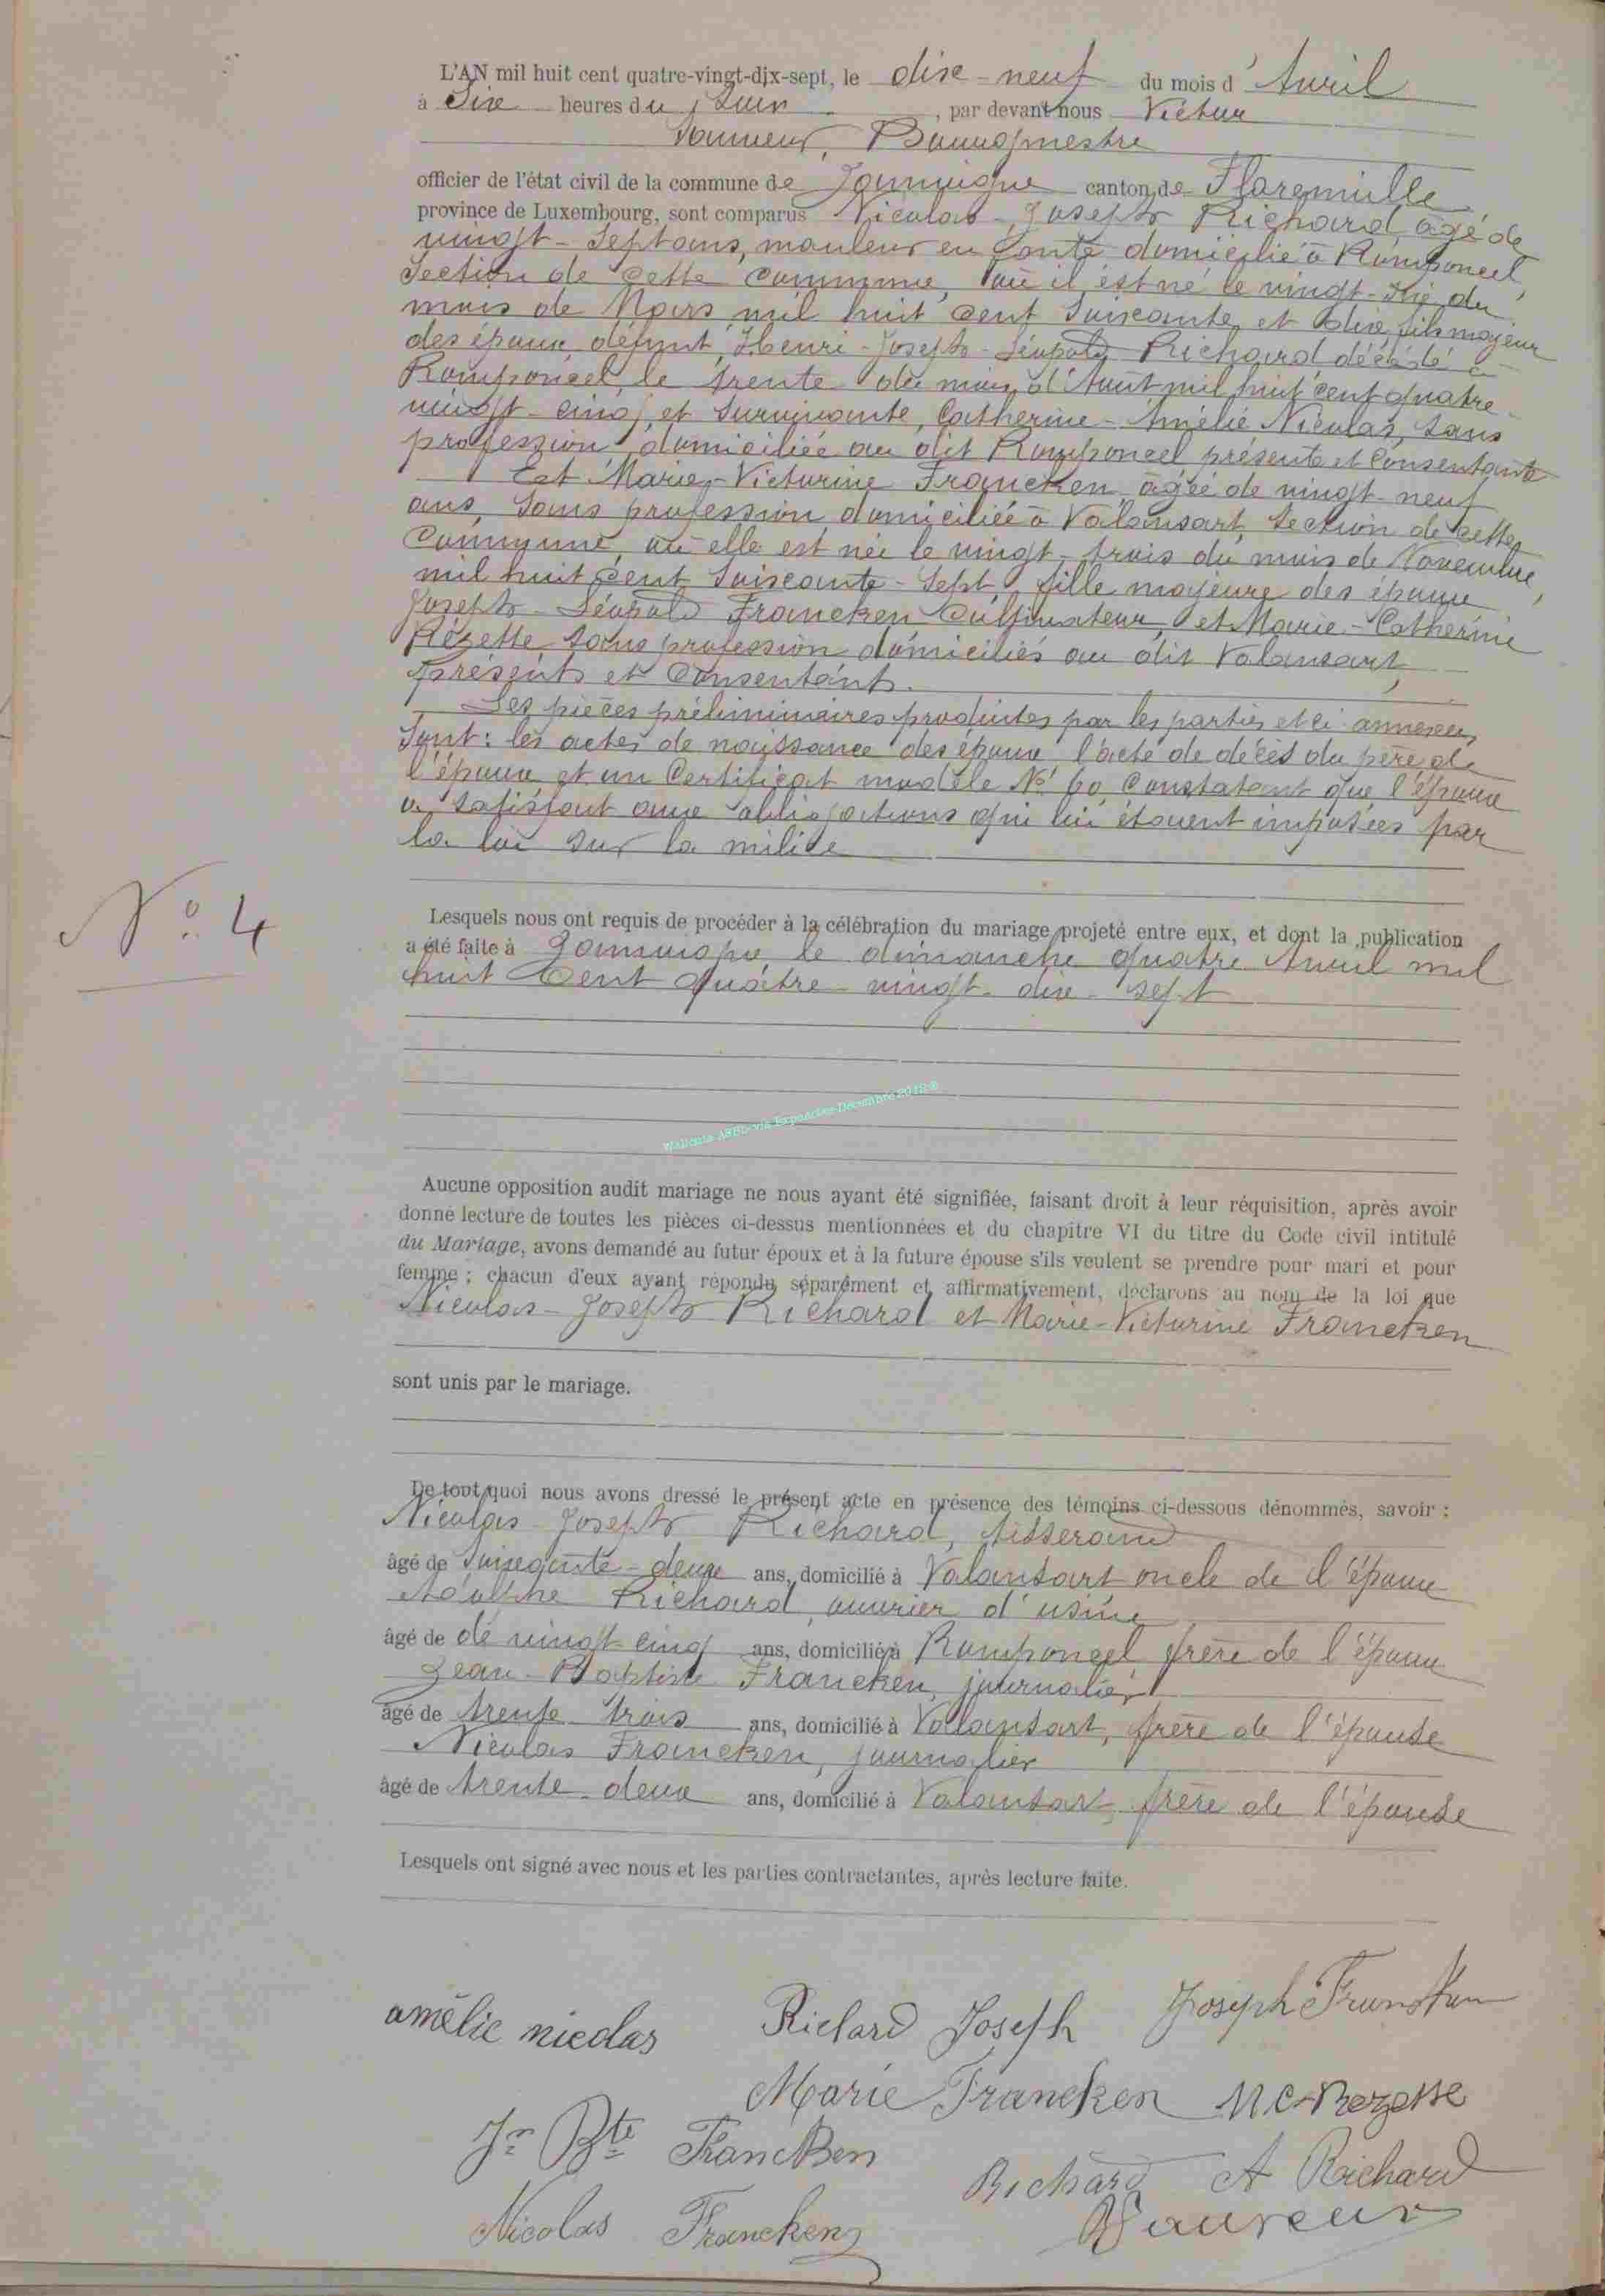 L'AN mil huit cent quatre-vingt-dix-sept, le dix-neuf du mois d'Avril
à Six heures du soir, par devant nous Victor
Bourgmestre
officier de l'état civil de la commune de Jamoigne canton de Florenville
province de Luxembourg, sont comparus Nicolas-Joseph Richard âgé de
vingt-sept ans, mouleur en fonte domicilié à Romponcel,
Section de cette Commune, où il est né le vingt-six du
mois de Mars mil huit cent soixante et dix, fils majeur
des époux, défunt, Henri-Joseph-Léopold Richard, décédé à
Romponcel, le trente du mois d'Août mil huit cent quatre-
vingt-cinq, et survivante, Catherine-Amélie Nicolas, sans
profession domiciliée au dit Romponcel présente et Consentante
Et Marie-Victorine Francken, âgée de vingt-neuf
ans, sans profession domiciliée à Valansart, Section de cette
Commune, où elle est née le vingt-trois du mois de Novembre
mil huit cent soixante-sept, fille majeure des époux
Joseph-Léopold Francken Cultivateur, et Marie-Catherine
Rézette sans profession domiciliés au dit Valansart,
présents et Consentants.
Les pièces préliminaires produites par les parties et ci-annexées,
sont: les actes de naissance des époux l'acte de décès du père de
l'époux et un Certificat modèle No 60, Constatant que l'époux
a satisfait aux obligations qui lui étaient imposées par
la loi sur la milice
No 4
Lesquels nous ont requis de procéder à la célébration du mariage projeté entre eux, et dont la publication
a été faite à Jamoigne le dimanche quatre Avril mil
huit Cent quatre-vingt-dix-sept
Wallonia ASBL via Expoactes Décembre 2012®
Aucune opposition audit mariage ne nous ayant été signifiée, faisant droit à leur réquisition, après avoir
donné lecture de toutes les pièces ci-dessus mentionnées et du chapitre VI du titre du Code civil intitulé
du Mariage, avons demandé au futur époux et à la future épouse s'ils veulent se prendre pour mari et pour
femme; chacun d'eux ayant répondu séparément et affirmativement, déclarons au nom de la loi que
Nicolas-Joseph Richard et Marie-Victorine Francken
sont unis par le mariage.
De tout quoi nous avons dressé le présent acte en présence des témoins ci-dessous dénommés, savoir:
Nicolas-Joseph Richard, tisserand
âgé de soixante-deux ans, domicilié à Valansart oncle de l'époux
Adolphe Richard, ouvrier d'usine
âgé de de vingt cinq ans, domicilié à Romponcel frère de l'époux
Jean-Baptiste Francken, journalier
âgé de trente trois ans, domicilié à Valansart, frère de l'épouse
Nicolas Francken, journalier
âgé de trente-deux ans, domicilié à Valansart, frère de l'épouse
Lesquels ont signé avec nous et les parties contractantes, après lecture faite.
amélie nicolas Richard Joseph Joseph Francken
Marie Francken M C Rezette
Jn Bte Francken
Richard A Richard
Nicolas Francken